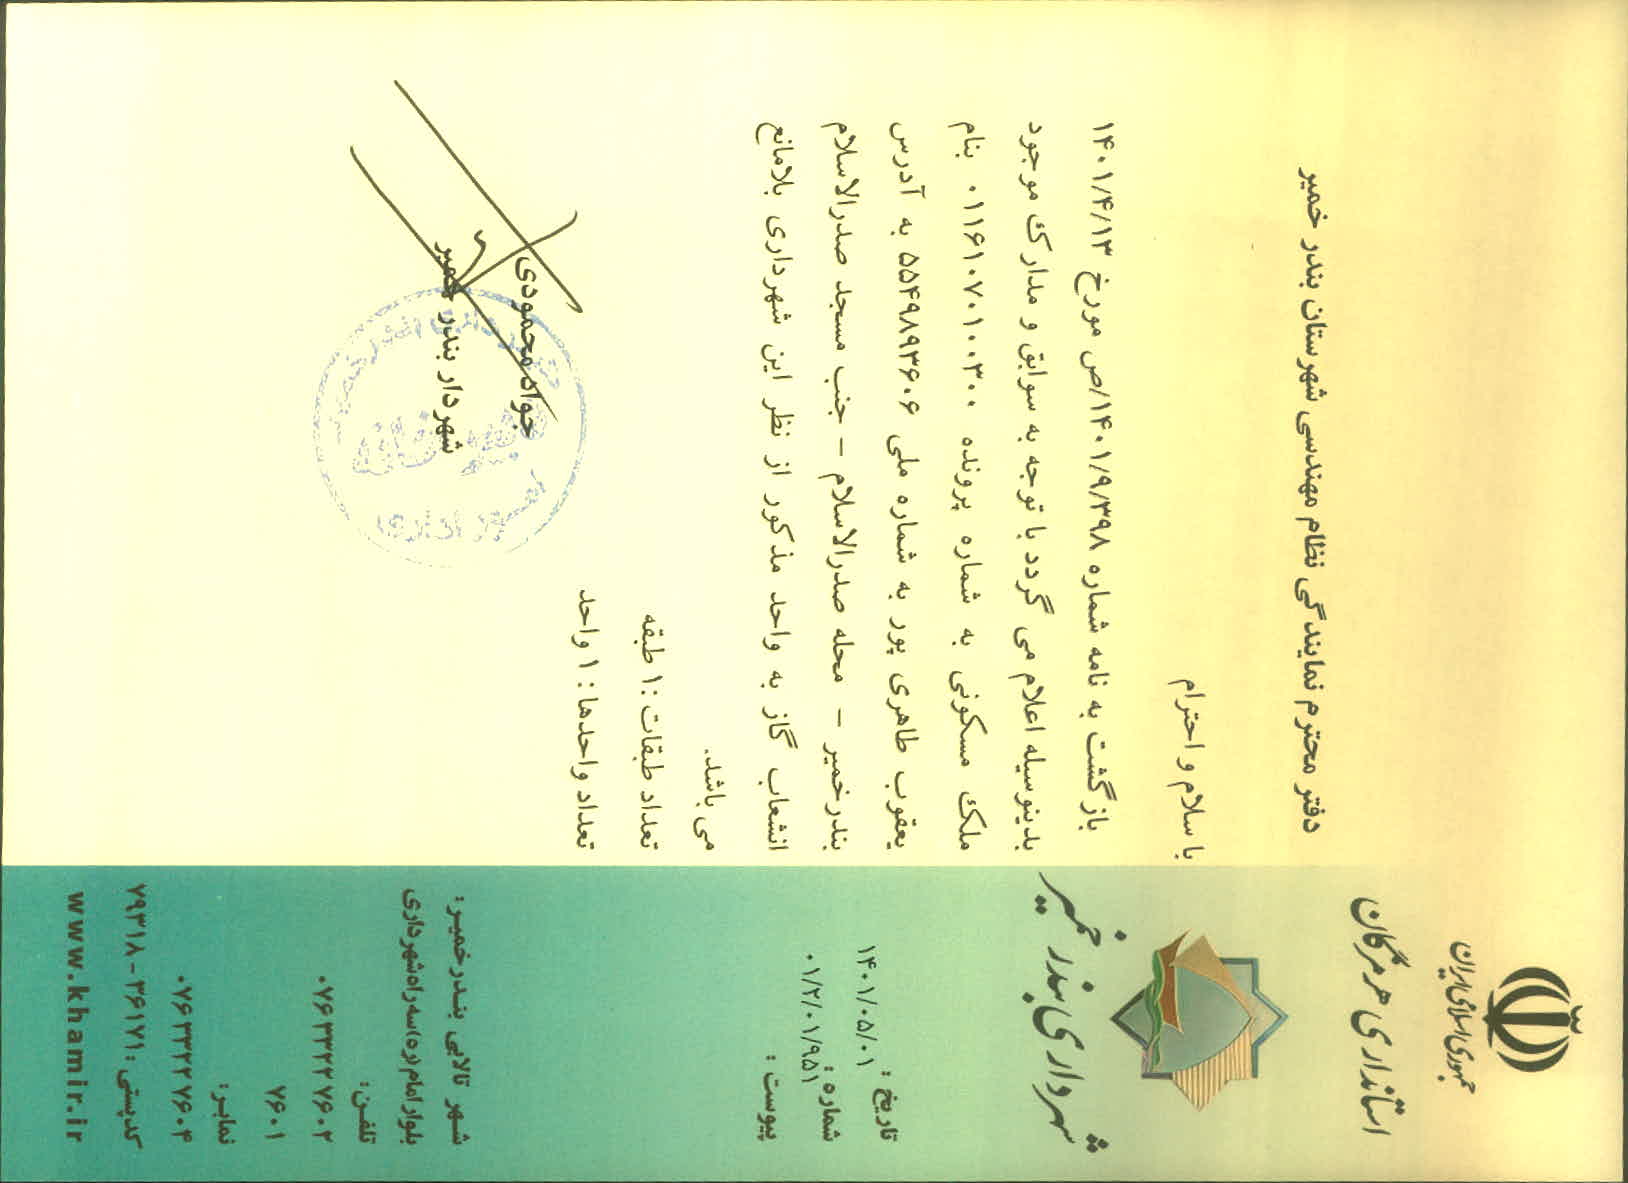 جمهوری اسلامی ایران
استانداری هرمزگان
شهرداری بندر خمیر
تاریخ : ۱۴۰۱/۰۵/۰۱
شماره : ۰۱/۲/۰۱/۹۵۱
پیوست :
دفتر محترم نمایندگی نظام مهندسی شهرستان بندر خمیر
با سلام و احترام
بازگشت به نامه شماره ۱۴۰۱/۹/۳۹۸/ص مورخ ۱۴۰۱/۴/۱۳
بدینوسیله اعلام می گردد با توجه به سوابق و مدارک موجود
ملک مسکونی به شماره پرونده ۰۱۱۶۱۰۷۰۱۰۰۳۰۰ بنام
یعقوب طاهری پور به شماره ملی ۵۵۴۹۸۹۳۶۰۶ به آدرس
بندرخمیر – محله صدرالاسلام – جنب مسجد صدرالاسلام
انشعاب گاز به واحد مذکور از نظر این شهرداری بلامانع
می باشد.
تعداد طبقات :۱ طبقه
تعداد واحدها : ۱ واحد
جواد محمودی
شهردار بندر خمیر
شهر تالابی بندرخمیر:
بلوار امام(ره)سه راه شهرداری
تلفن:
۰۷۶۳۳۲۲۷۶۰۲
۷۶۰۱
نمابر:
۰۷۶۳۳۲۲۷۶۰۴
کدپستی : ۳۶۱۷۱-۷۹۳۱۸
www.khamir.ir